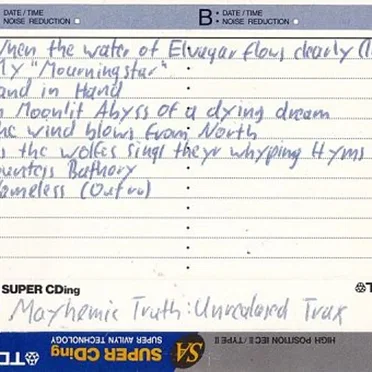 DATE / TIME
NOISE REDUCTION
B • DATE / TIME
• NOISE REDUCTION
When the water of Elvagar flows clearly
My "Mourningstar"
and in Hand
Moonlit Abyss of a dying dream
the wind blows from North
the wolfes sings theyr whyping Hyms
ountess Bathory
ameless (Outro)
SUPER CDing
Mayhemic Truth: Unrealared Trax
HIGH POSITION IEC II / TYPE II
SA
SUPER CDing
SUPER AVILYN TECHNOLOGY
TD